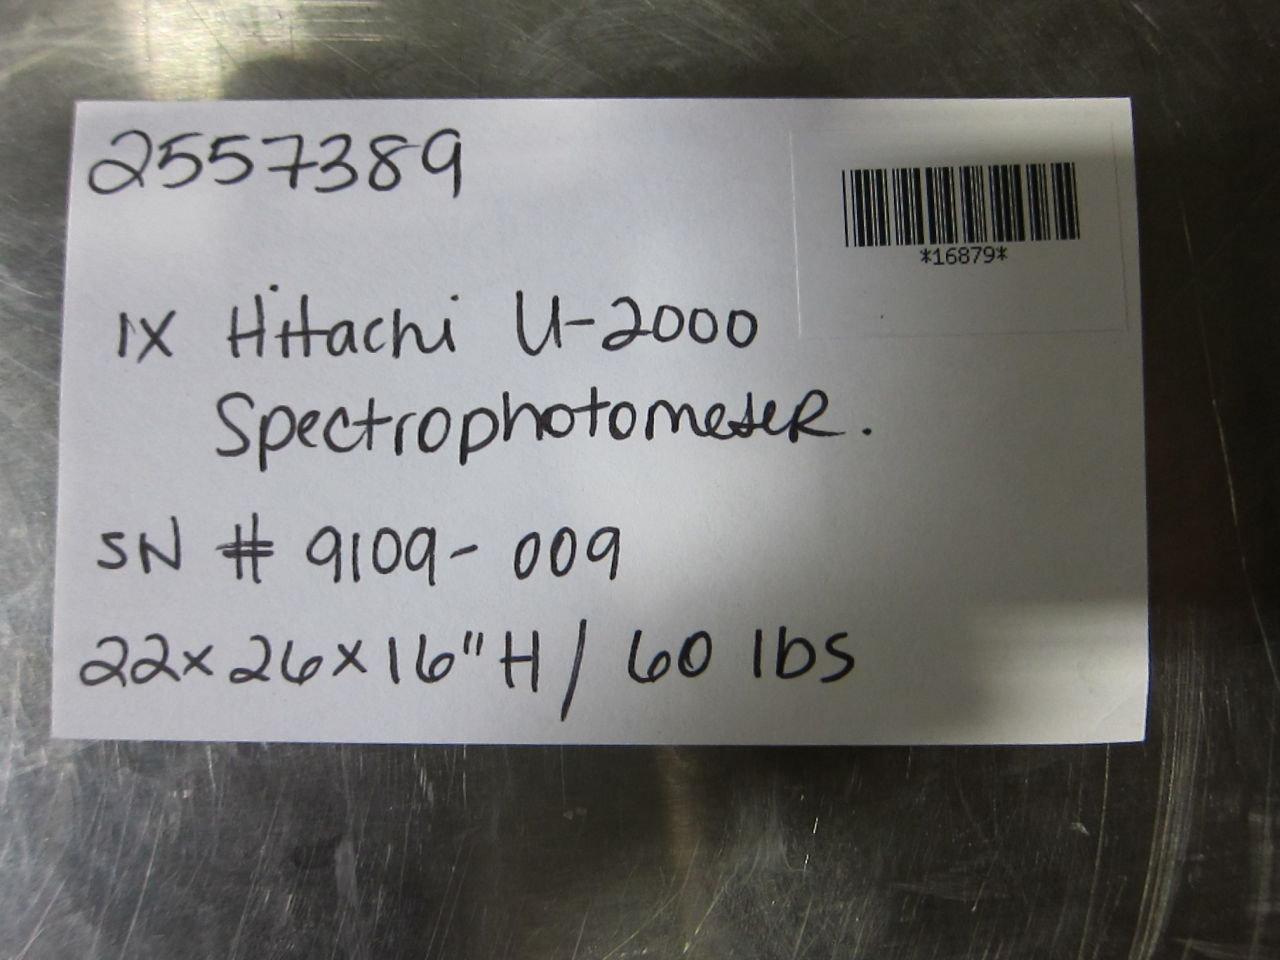 2557389
*16879*
1X Hitachi U-2000
Spectrophotometer.
SN # 9109-009
22x26x16"H/ 60 lbs